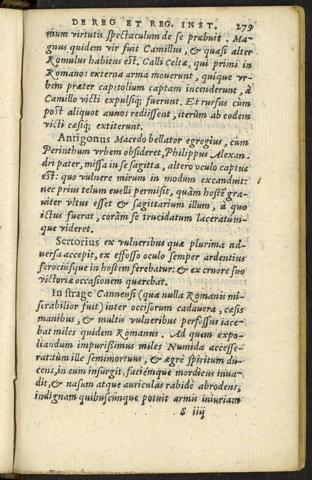 DE REG ET REG. INST. 279
mum virtutis spectaculum de se præbuit. Ma-
gnus quidem vir fuit Camillus, & quasi alter
Romulus habitus est. Galli Celtæ, qui primi in
Romanos externa arma mouerunt, quique vr-
bem præter capitolium captam incenderunt, à
Camillo victi expulsiq; fuerunt. Et rursus cùm
post aliquot annos redissent, iterùm ab eodem
victi cæsiq; extiterunt.
Antigonus Macedo bellator egregius, cum
Perinthum vrbem obsideret, Philippus Alexan-
dri pater, missa in se sagitta, altero oculo captus
est: quo vulnere mirùm in modum excanduit:
nec prius telum euelli permisit, quàm hostē gra-
uiter vltus esset & sagittarium illum, à quo
ictus fuerat, coràm se trucidatum laceratúm-
que videret.
Sertorius ex vulneribus quæ plurima ad-
uersa accepit, ex effosso oculo semper ardentius
ferociusque in hostem ferebatur: & ex cruore suo
victoriæ occasionem quærebat.
In strage Cannensi (qua nulla Romanis mi-
serabilior fuit) inter occisorum cadauera, cæsis
manibus, & multis vulneribus perfossus iace-
bat miles quidem Romanus. Ad quem expo-
liandum impurissimus miles Numida accesse-
rat: tùm ille semimortuus, & ægrè spiritum du-
cens, in eum insurgit, faciémque mordicus inua-
dit, & nasum atque auriculas rabidè abrodens,
indignam quibuscūnque potuit armis iniuriam
S iiij